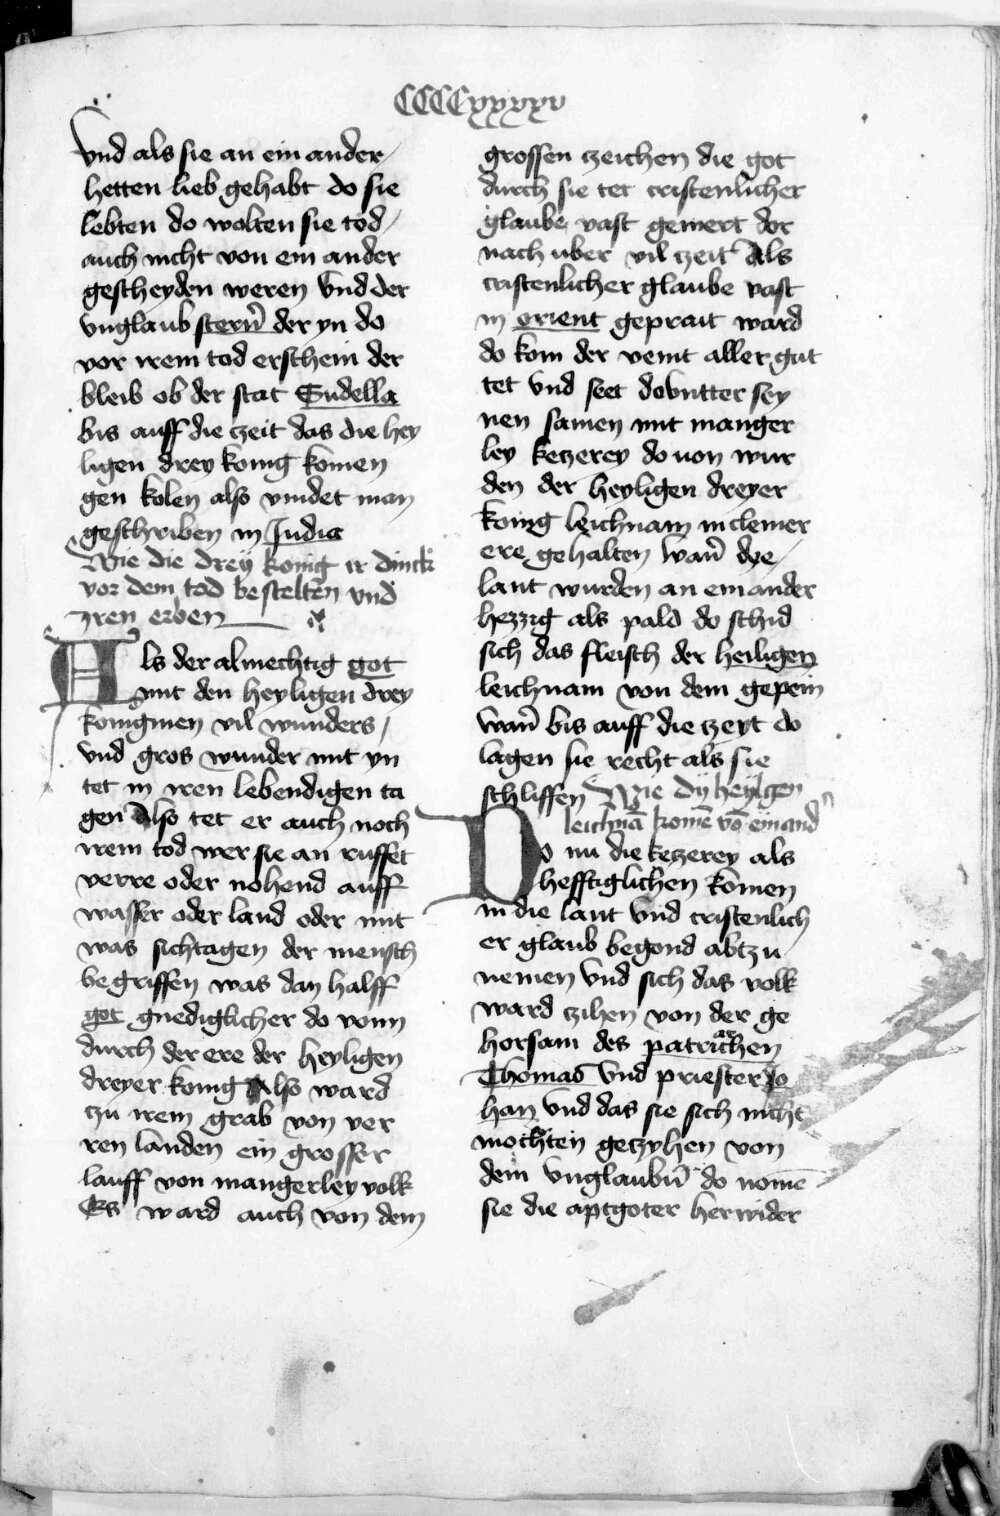 CCCCxxxxv
vnd als sie an ein ander
hetten lieb gehabt do sie
lebten do wolten sie tod
auch nicht von ein ander
gescheyden weren vnd der
vnglaub stern̄ der yn do
vor irem tod erschein der
bleib ob der stat Sudella
bis auff die czeit das die hey
ligen drey konig komen
gen kolen also vindet man
geschriben in Judia
Wie die dreÿ konig ir dinck
vor dem tod bestelten vnd
iren erben
Als der almechtig got
mit den heyligen drey
koniginen vil wunders
vnd gros wunder mit yn
tet in iren lebendigen ta
gen Also tet er auch noch
irem tod wer sie an ruffet
verre oder nohend auff
wasser oder land oder mit
was sichtagen der mensch
begriffen was dan halff
got gnediglicher do vonn
durch der ere der heyligen
dreyer konig Also ward
czu irem grab von ver
ren landen ein grosser
lauff von mangerley volk
Es ward auch von dem
grossen czeichen die got
durch sie tet cristenlicher
glaube vast gemert dor
nach uber vil czeit Als
cristenlicher glaube vast
in orient geprait ward
do kom der veint aller gut
tet vnd seet dovntter sey
nen samen mit manger
ley keczerey do uon wur
den der heyligen dreyer
konig leichnam in clemer
ere gehalten wan̄ dye
lant wurden an ein ander
hezzig als pald do schid
sich das fleisch der heiligen
leichnam von dem gepein
wan̄ bis auff die czeyt do
lagen sie recht als sie
schliffen Wie dÿ heylgen
leichnā komē vō ein and
Do nu die keczerey als
hefftiglichen komen
in die lant vnd cristenlich
er glaub begond abczu
nemen vnd sich das volk
ward czihen von der ge
horsam des patriarchen
Thomas vnd priester Jo
han vnd das sie sich nicht
mochten geczyhen von
dem vnglaubn̄ do nomē
sie die aptgoter herwider